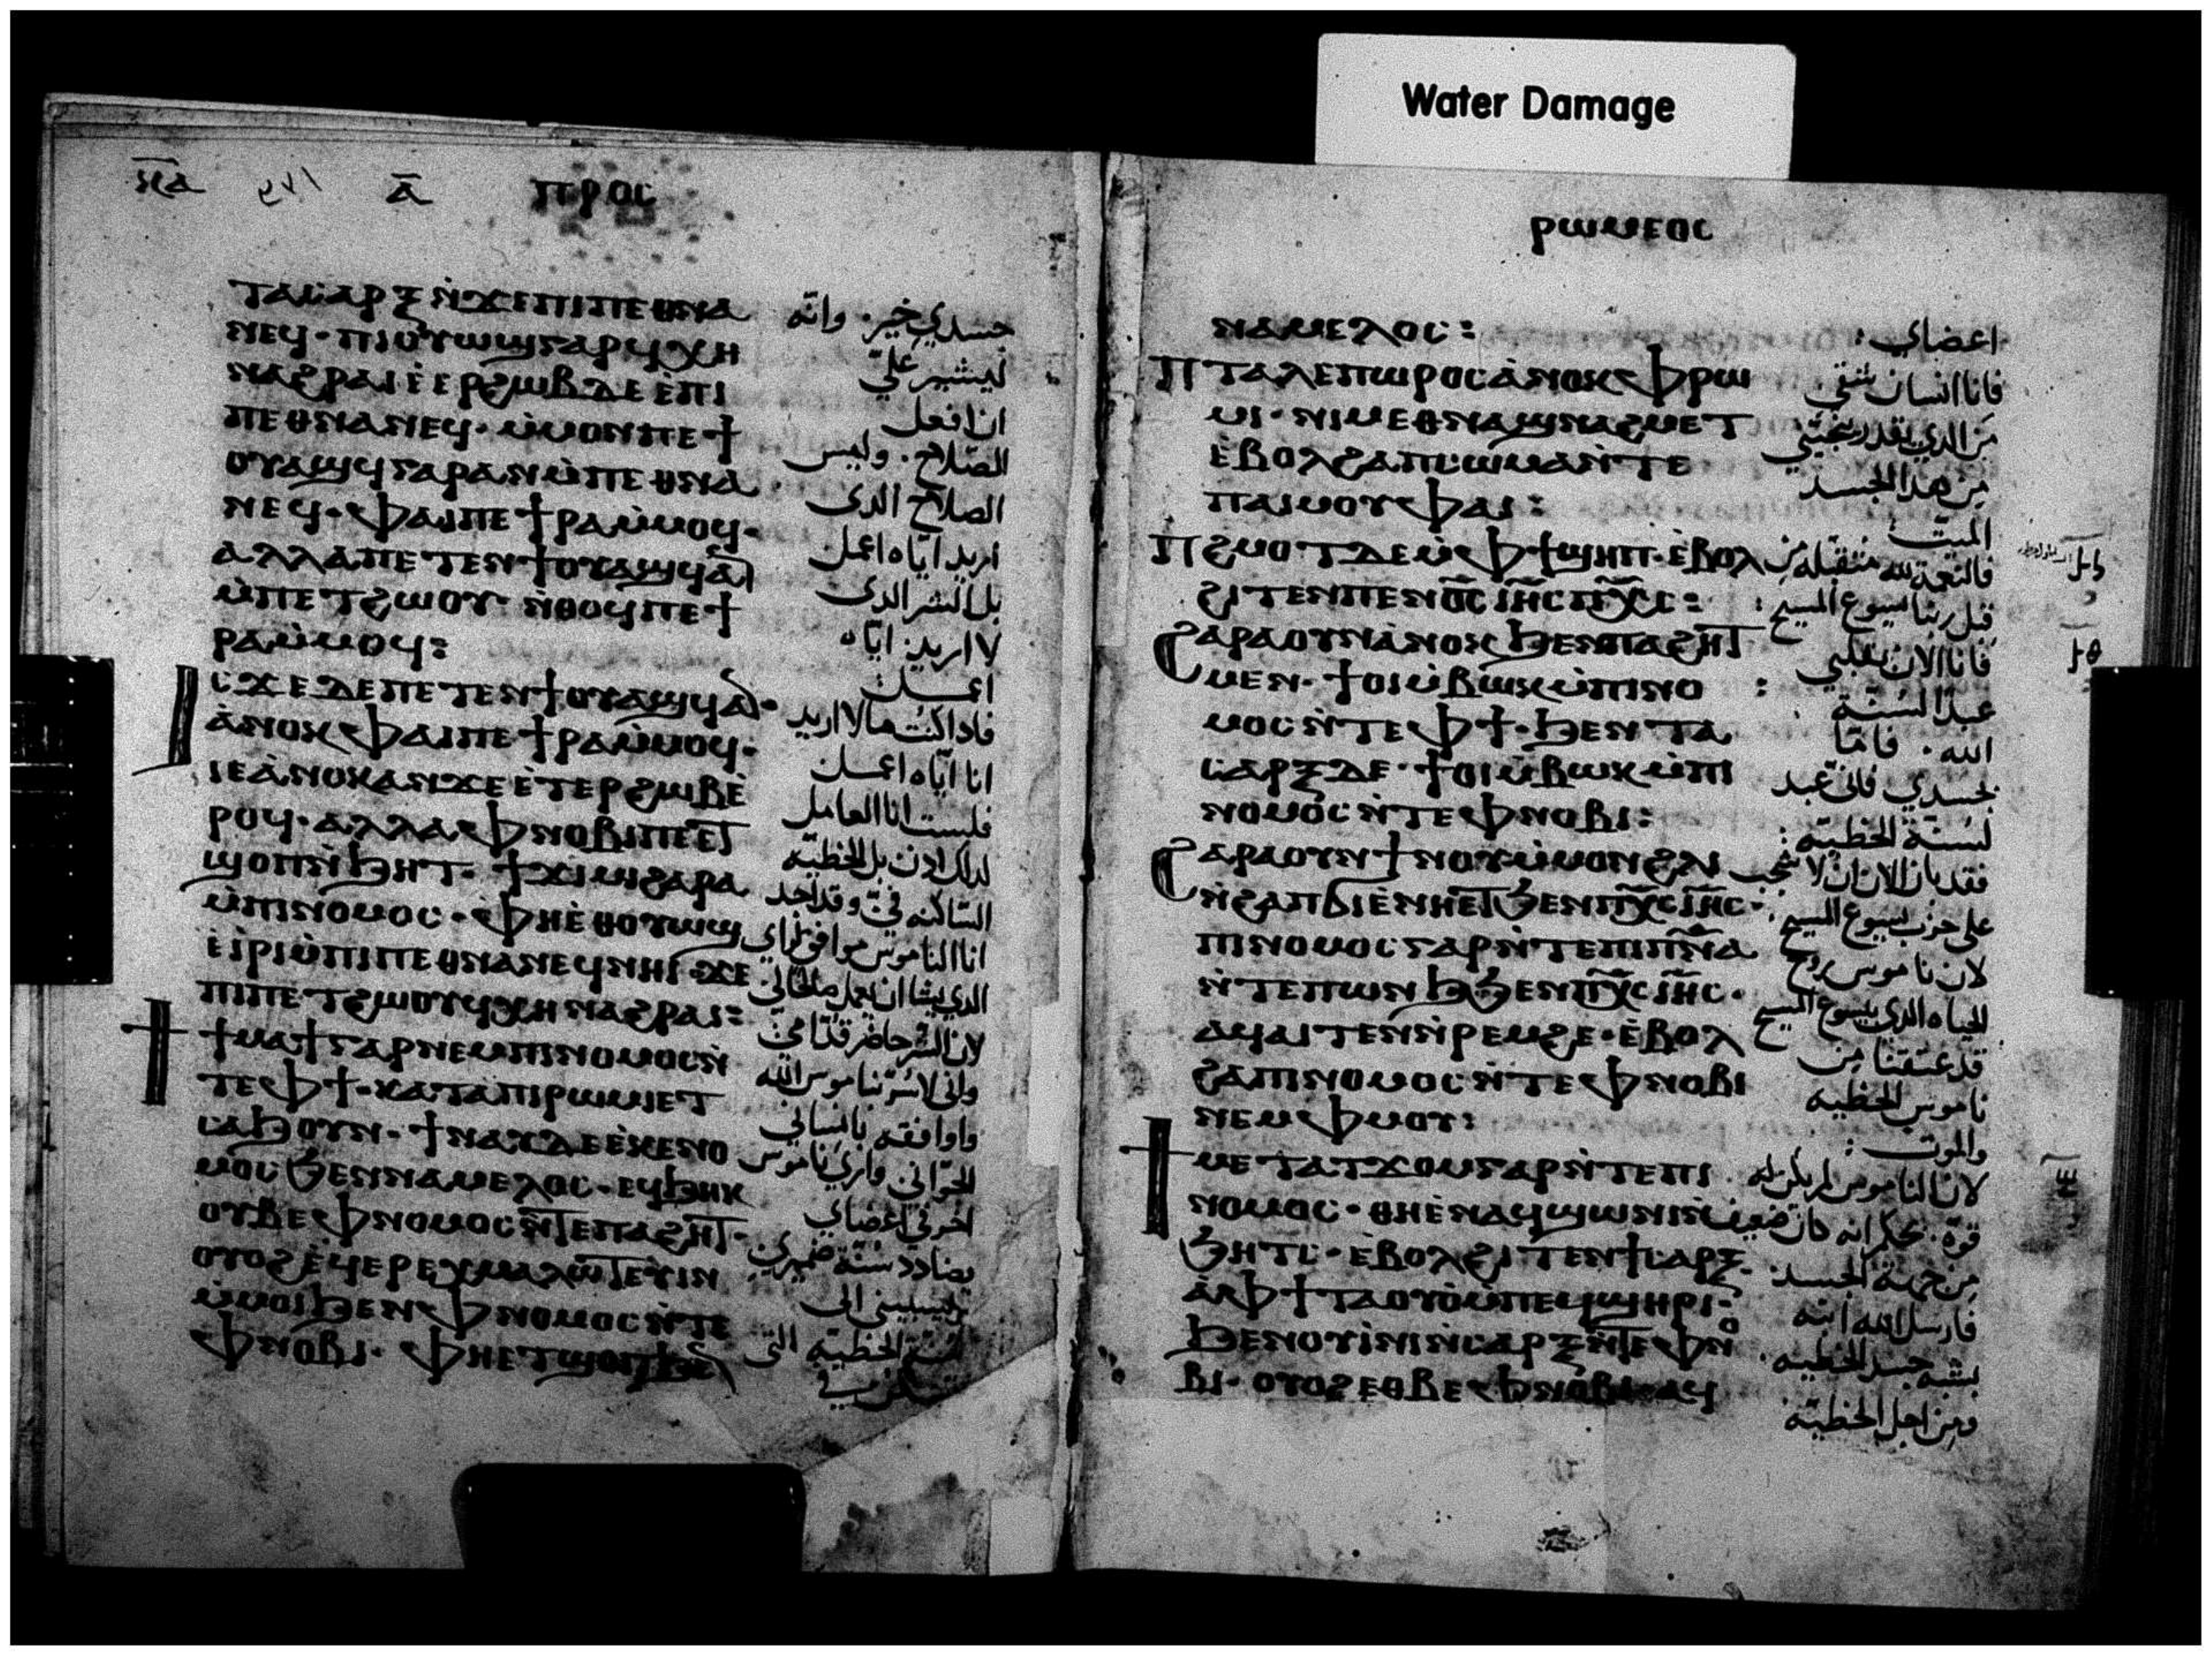 Water Damage
ⲓⲉⲁ ⲁ̄ ⲡⲣⲟⲥ
ⲧⲁⲥⲁⲣⲝ ⲛ̀ϫⲉⲡⲓⲡⲉⲑⲛⲁ
ⲛⲉϥ· ⲡⲓⲟⲩⲱϣ ⲅⲁⲣ ϥⲭⲏ
ⲛⲁϩⲣⲁⲓ ⲉ̀ⲉⲣϩⲱⲃ ⲇⲉ ⲉ̀ⲡⲓ
ⲡⲉⲑⲛⲁⲛⲉϥ· ⲙ̀ⲙⲟⲛ ⲡⲉϯ
ⲟⲩⲁϣϥ ⲅⲁⲣ ⲁⲛ ⲙ̀ⲡⲉⲑⲛⲁ
ⲛⲉϥ· ⲫⲁⲓ ⲡⲉ ϯⲣⲁ ⲙ̀ⲙⲟϥ·
ⲁⲗⲗⲁ ⲡⲉⲧⲉⲛϯⲟⲩⲁϣϥ ⲁⲛ
ⲙ̀ⲡⲉⲧϩⲱⲟⲩ· ⲛ̀ⲑⲟϥ ⲡⲉ ϯ
ⲣⲁ ⲙ̀ⲙⲟϥ:
Ⲓⲥϫⲉ ⲇⲉ ⲡⲉⲧⲉⲛϯⲟⲩⲁϣϥ ⲁⲛ·
ⲁ̀ⲛⲟⲕ ⲫⲁⲓ ⲡⲉ ϯⲣⲁ ⲙ̀ⲙⲟϥ·
ⲓⲉ ⲁ̀ⲛⲟⲕ ⲁⲛ ϫⲉ ⲉ̀ⲧⲉⲣϩⲱⲃ ⲉ̀
ⲣⲟϥ· ⲁⲗⲗⲁ ⲫⲛⲟⲃⲓ ⲡⲉⲧ
ϣⲟⲡ ⲛ̀ϧⲏⲧ· ϯϫⲓⲙⲓ ϩⲁⲣⲁ
ⲙ̀ⲡⲓⲛⲟⲙⲟⲥ· ⲫⲏ ⲉ̀ⲑⲟⲩⲱϣ
ⲉ̀ⲓ̀ⲣⲓ ⲙ̀ⲡⲓⲡⲉⲑⲛⲁⲛⲉϥ ⲛⲏⲓ· ϫⲉ
ⲡⲓⲡⲉⲧϩⲱⲟⲩ ϥⲭⲏ ⲛⲁϩⲣⲁⲓ:
Ϯϯⲙⲁϯ ⲅⲁⲣ ⲛⲉⲙ ⲡⲓⲛⲟⲙⲟⲥ ⲛ̀
ⲧⲉ ⲫϯ· ⲕⲁⲧⲁ ⲡⲓⲣⲱⲙⲓ ⲉⲧ
ⲥⲁϧⲟⲩⲛ· ϯⲛⲁⲩ ⲇⲉ ⲉ̀ⲕⲉⲛⲟ
ⲙⲟⲥ ϧⲉⲛ ⲛⲁⲙⲉⲗⲟⲥ· ⲉϥϧⲏⲕ
ⲟⲩⲃⲉ ⲫⲛⲟⲙⲟⲥ ⲛ̀ⲧⲉ ⲡⲁϩⲏⲧ·
ⲟⲩⲟϩ ⲉ̀ϥⲉⲣⲉⲭⲙⲁⲗⲱⲧⲉⲩⲓⲛ
ⲙ̀ⲙⲟⲓ ϧⲉⲛ ⲫⲛⲟⲙⲟⲥ ⲛ̀ⲧⲉ
ⲫⲛⲟⲃⲓ· ⲫⲏ ⲉⲧϣⲟⲡ ϧⲉⲛ
جسدي خير. وانّه
ليشير عليّ
ان افعل
الصّلاح. وليس
الصلاح الدى
اريد ايّاه اعمل
بل الشر الدى
لا اريد ايّاه
اعمل
فادا كنت ما لا اريد
انا ايّاه اعمل
فلست انا العامل
لدلك ادن بل الخطيّه
السّاكنه فىّ وقد اجد
انا الناموس موافق لراي
الدي يشا ان يعمل صلحاتي
لان الشر حاضر قدّامي
واني لاسرّ بناموس الله
واوافقه بانساني
الجوّاني وارى ناموس
اخر في اعضاي
يضادد سنّة ضميري
ويسبيني الى
سنّة الخطيّه التى
ⲣⲱⲙⲉⲟⲥ
ⲛⲁⲙⲉⲗⲟⲥ:
Ⲡⲧⲁⲗⲉⲡⲱⲣⲟⲥ ⲁ̀ⲛⲟⲕ ⲫⲣⲱ
ⲙⲓ· ⲛⲓⲙ ⲉⲑⲛⲁϣⲛⲁϩⲙⲉⲧ
ⲉ̀ⲃⲟⲗ ϩⲁ ⲡⲥⲱⲙⲁ ⲛ̀ⲧⲉ
ⲡⲁⲓⲙⲟⲩ ⲫⲁⲓ:
Ⲡϩⲙⲟⲧ ⲇⲉ ⲙ̀ⲫϯ ϣⲏⲡ· ⲉ̀ⲃⲟⲗ
ϩⲓⲧⲉⲛ ⲡⲉⲛⲟ̅ⲥ̅ ⲓ̅ⲏ̅ⲥ̅ ⲡⲭ̅ⲥ̅:
Ϩⲁⲣⲁ ⲟⲩⲛ ⲁ̀ⲛⲟⲕ ϧⲉⲛ ⲡⲁϩⲏⲧ
ⲙⲉⲛ· ϯⲟⲓ ⲙ̀ⲃⲱⲕ ⲙ̀ⲡⲓⲛⲟ
ⲙⲟⲥ ⲛ̀ⲧⲉ ⲫϯ· ϧⲉⲛ ⲧⲁ
ⲥⲁⲣⲝ ⲇⲉ· ϯⲟⲓ ⲙ̀ⲃⲱⲕ ⲙ̀ⲡⲓ
ⲛⲟⲙⲟⲥ ⲛ̀ⲧⲉ ⲫⲛⲟⲃⲓ:
Ϩⲁⲣⲁ ⲟⲩⲛ ϯⲛⲟⲩ ⲙ̀ⲙⲟⲛ ϩⲗⲓ
ⲛ̀ϩⲁⲡ ϭⲓ ⲉ̀ⲛⲏⲉⲧϧⲉⲛ ⲡⲭ̅ⲥ̅ ⲓ̅ⲏ̅ⲥ̅·
ⲡⲓⲛⲟⲙⲟⲥ ⲅⲁⲣ ⲛ̀ⲧⲉ ⲡⲓⲡ̅ⲛ̅ⲁ̅
ⲛ̀ⲧⲉ ⲡⲱⲛϧ ϧⲉⲛ ⲡⲭ̅ⲥ̅ ⲓ̅ⲏ̅ⲥ̅·
ⲁϥⲁⲓⲧⲉⲛ ⲛ̀ⲣⲉⲙϩⲉ· ⲉ̀ⲃⲟⲗ
ϩⲁ ⲡⲓⲛⲟⲙⲟⲥ ⲛ̀ⲧⲉ ⲫⲛⲟⲃⲓ
ⲛⲉⲙ ⲫⲙⲟⲩ:
Ϯⲙⲉⲧⲁⲧϫⲟⲙ ⲅⲁⲣ ⲛ̀ⲧⲉ ⲡⲓ
ⲛⲟⲙⲟⲥ· ⲑⲏ ⲉ̀ⲛⲁϥϣⲱⲛⲓ ⲛ̀
ϧⲏⲧⲥ· ⲉ̀ⲃⲟⲗ ϩⲓⲧⲉⲛ ϯⲥⲁⲣⲝ·
ⲁ̀ⲫϯ ⲧⲁⲟⲩⲟ̀ ⲙ̀ⲡⲉϥϣⲏⲣⲓ·
ϧⲉⲛ ⲟⲩⲓ̀ⲛⲓ ⲛ̀ⲥⲁⲣⲝ ⲛ̀ⲧⲉ ⲫⲛⲟ
ⲃⲓ· ⲟⲩⲟϩ ⲉⲑⲃⲉ ⲫⲛⲟⲃⲓ· ⲁϥ
اعضاي:
فانا انسان شقي
من الدي يقدر ينجّيني
من هدا الجسد
الميّت:
فالنعمه لله متقبله من
قبل ربنا يسوع المسيح:
فانا الان بقلبي
عبدًا لسُنّة
الله. فامّا
بجسدي فاني عبد
لسنة الخطيّه:
فقد بان الان ان لا شجب
على حزب يسوع المسيح
لان ناموس روح
الحياه الدى بيسوع المسيح
قد عتقنا من
ناموس الخطيه
والموت:
لان الناموس لم يكن له
قوّه
من جهة الجسد
فارسل الله ابنه
بشبه جسد الخطيه
ومن اجل الخطيّه